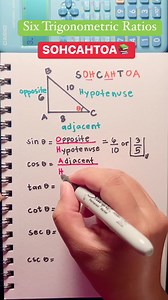 Six Trigonometric Ratios
SOHCAHTOA
SOHCAHTOA
B
10
Hypotenuse
opposite
6
θ
A
8
C
adjacent
sin θ = Opposite / Hypotenuse = 6/10 or 3/5
cos θ = Adjacent / H
tan θ =
cot θ =
sec θ =
csc θ =